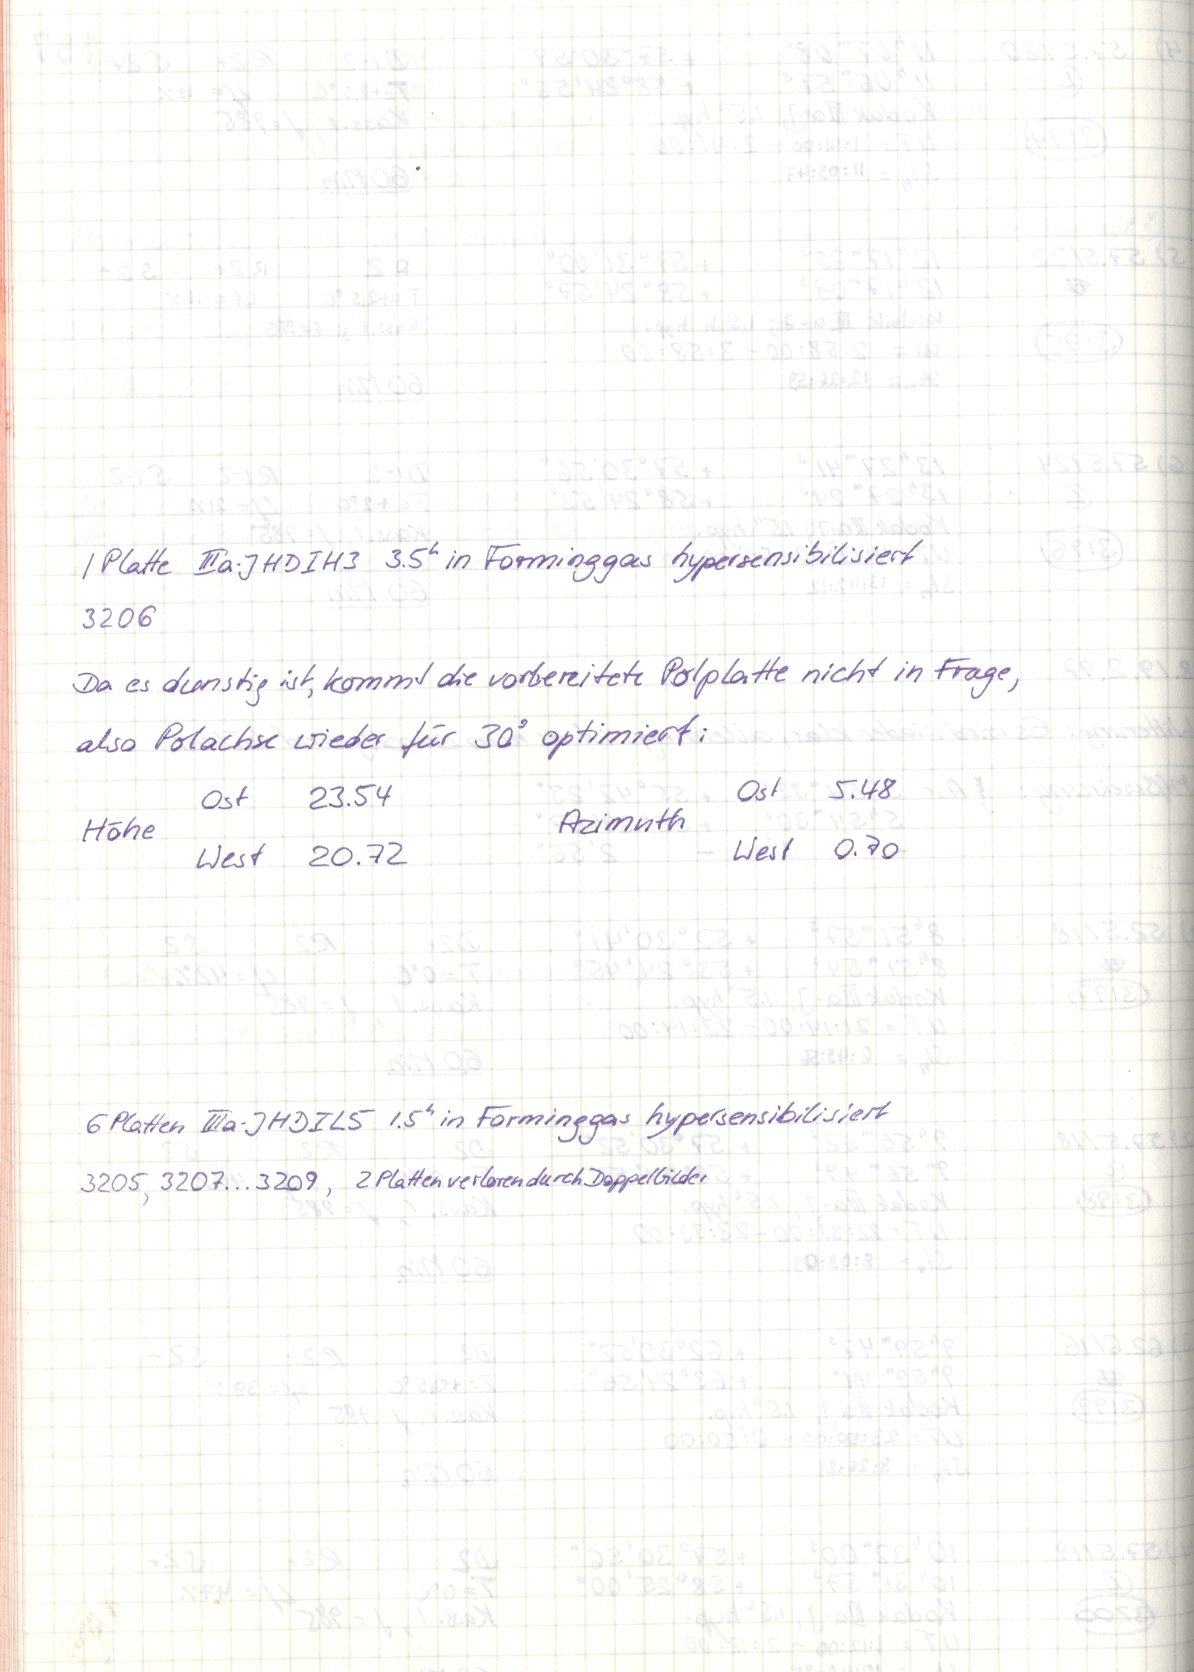 1 Platte IIIa-J HDIH3 3.5ʰ in Forminggas hypersensibilisiert
3206
Da es dunstig ist, kommt die vorbereitete Polplatte nicht in Frage,
also Polachse wieder für 30° optimiert:
Ost 23.54 Ost 5.48
Höhe Azimuth
West 20.72 West 0.70
6 Platten IIIa-J HDIL5 1.5ʰ in Forminggas hypersensibilisiert
3205, 3207...3209, 2 Platten verloren durch Doppelbilder